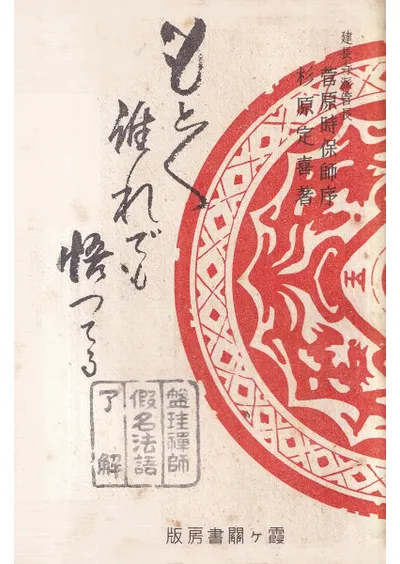 建長寺派管長
菅原時保師序
杉原定壽著
もと〱
誰れでも
悟つてる
盤珪禪師
假名法語
了解
五
霞ヶ關書房版